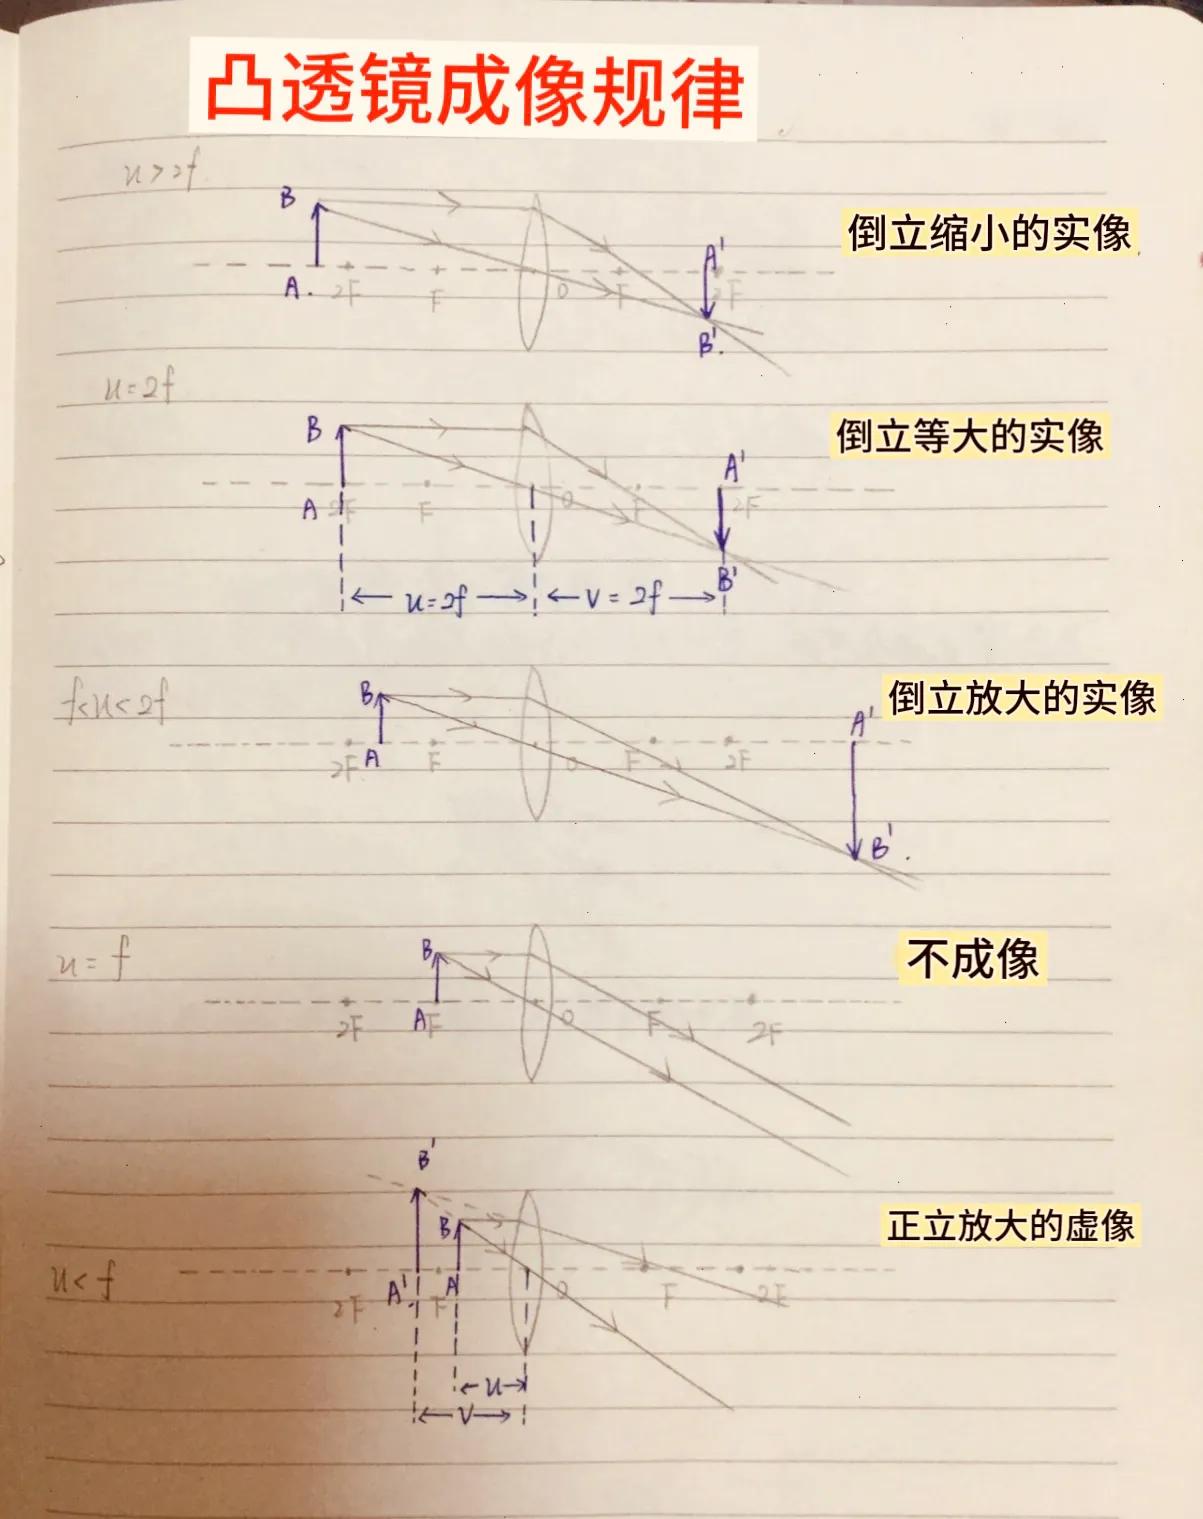 凸透镜成像规律
u>2f
B A' 倒立缩小的实像
A. 2F F O F 2F
B'.
u=2f
B A' 倒立等大的实像
A 2F F O F 2F
B'
u=2f v=2f
f<u<2f B A' 倒立放大的实像
2F A F O F 2F
B'.
u=f B 不成像
2F A F O F 2F
B'
B 正立放大的虚像
u<f 2F A' F A O F 2F
u
v